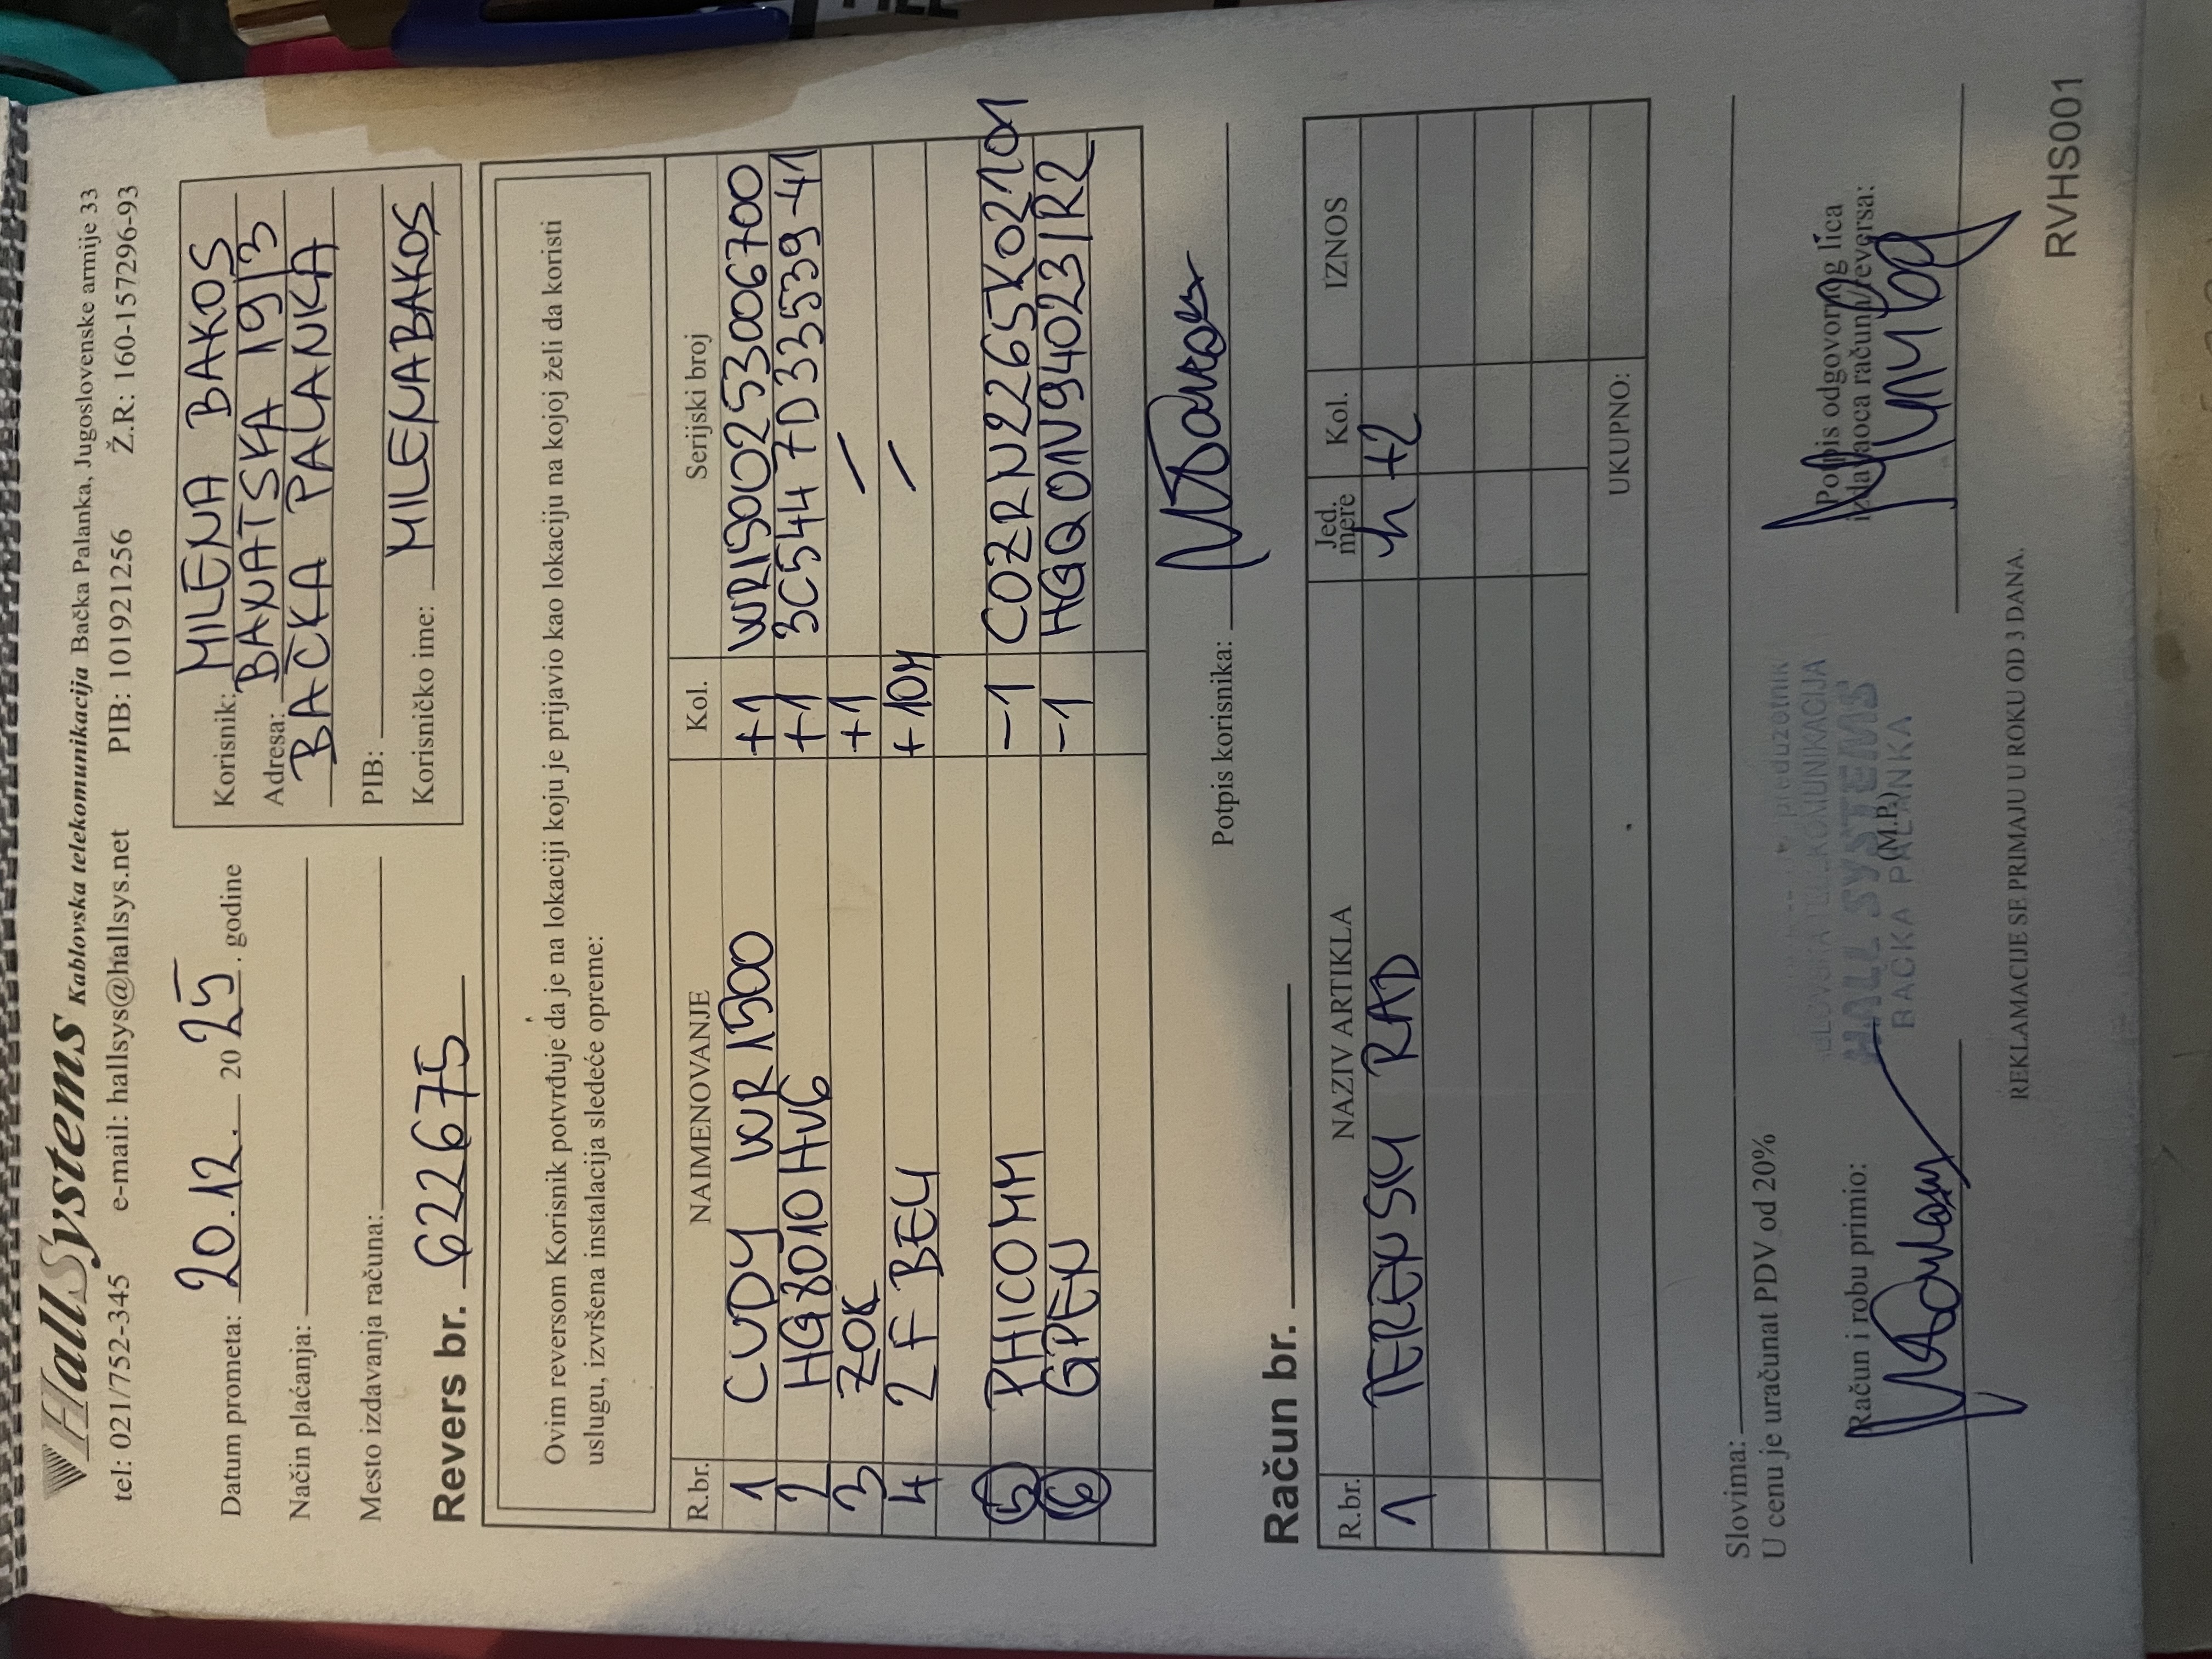 HallSystems Kablovska telekomunikacija Bačka Palanka, Jugoslovenske armije 33
tel: 021/752-345 e-mail: hallsys@hallsys.net PIB: 101921256 Ž.R: 160-157296-93
Datum prometa: 20.12. 2025. godine
Način plaćanja:
Mesto izdavanja računa:
Revers br. 622675
Korisnik: MILENA BAKOS
Adresa: BANATSKA 19/3
BAČKA PALANKA
PIB:
Korisničko ime: MILENABAKOS
Ovim reversom Korisnik potvrđuje da je na lokaciji koju je prijavio kao lokaciju na kojoj želi da koristi
uslugu, izvršena instalacija sledeće opreme:
R.br. NAIMENOVANJE Kol. Serijski broj
1 CUDY WR1500 +1 WR1500253006700
2 HG8010Hv6 +1 3C5447D33539-41
3 ZOK +1 /
4 2F BELI +10M /
5 PHICOMM -1 COZRN2265K02101
6 GPEN -1 HGQ01V94023IR2
Potpis korisnika:
Račun br.
R.br. NAZIV ARTIKLA Jed. mere Kol. IZNOS
1 TERENSKI RAD h +2
UKUPNO:
Slovima:
U cenu je uračunat PDV od 20%
Račun i robu primio:
(M.P.)
Potpis odgovornog lica
izdavaoca računa/reversa:
preduzetnik
KOMUNIKACIJA
HALL SYSTEMS
BAČKA PALANKA
REKLAMACIJE SE PRIMAJU U ROKU OD 3 DANA.
RVHS001